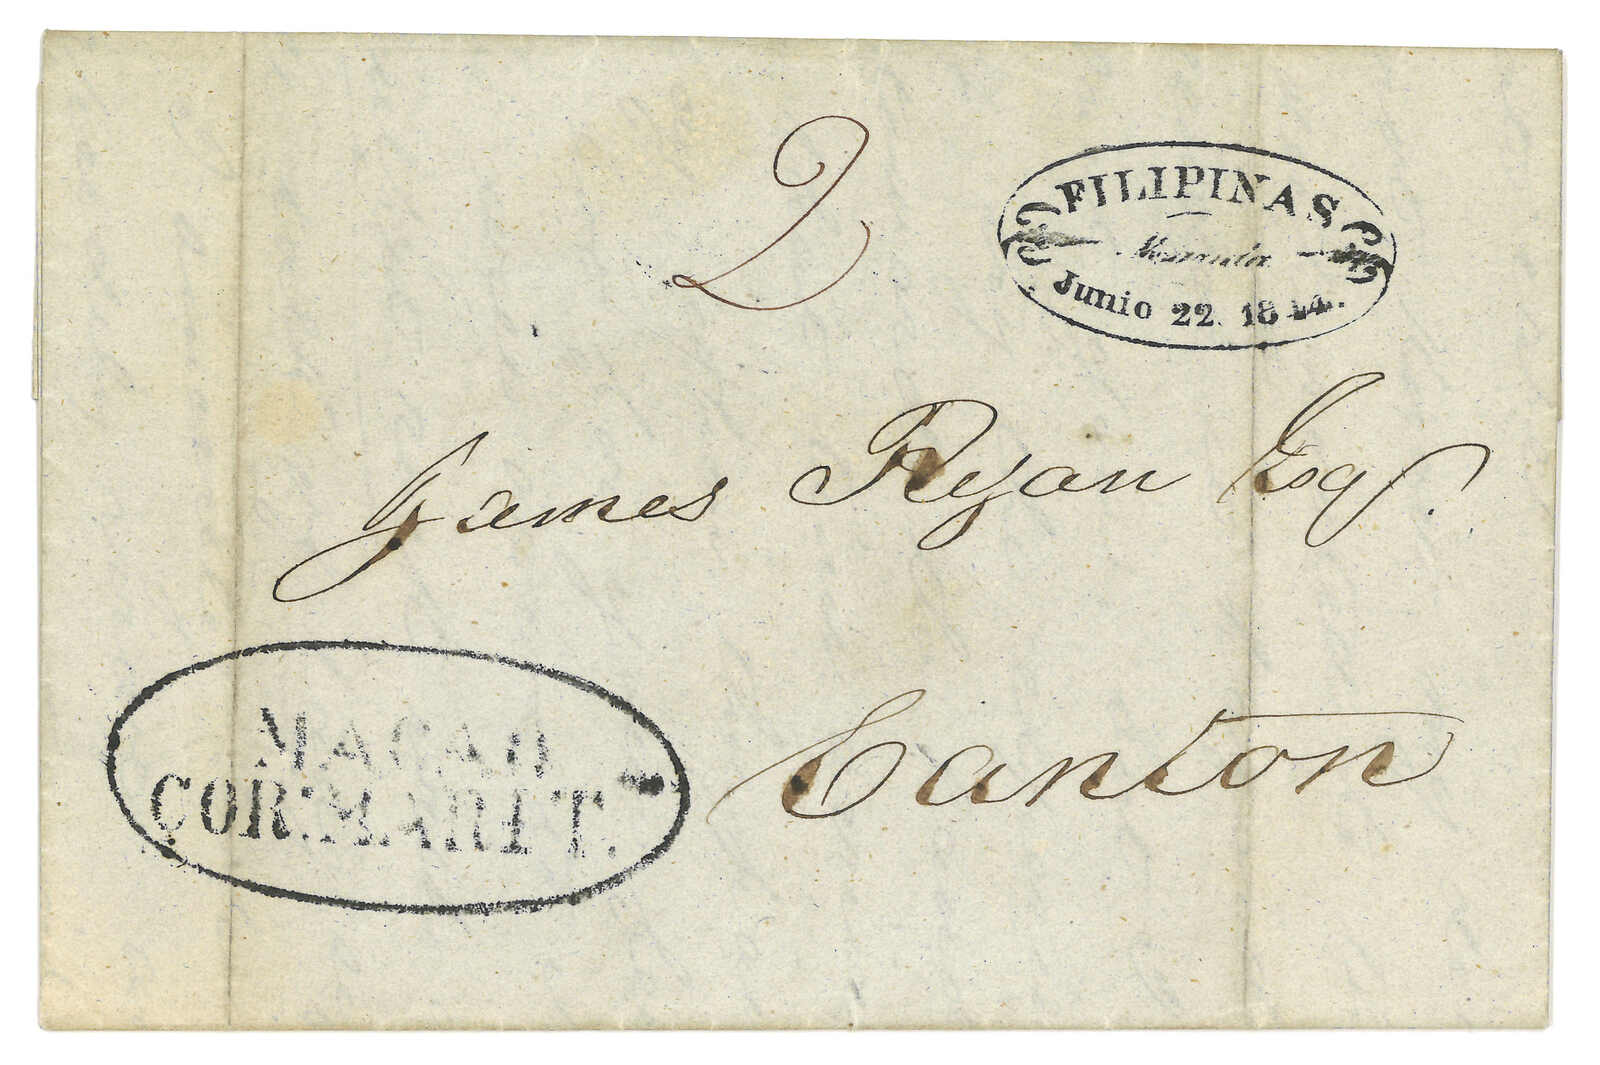 2
FILIPINAS
Junio 22. 1844.
James Ryan Esq.
Canton
MACAO
COR: MARIT.